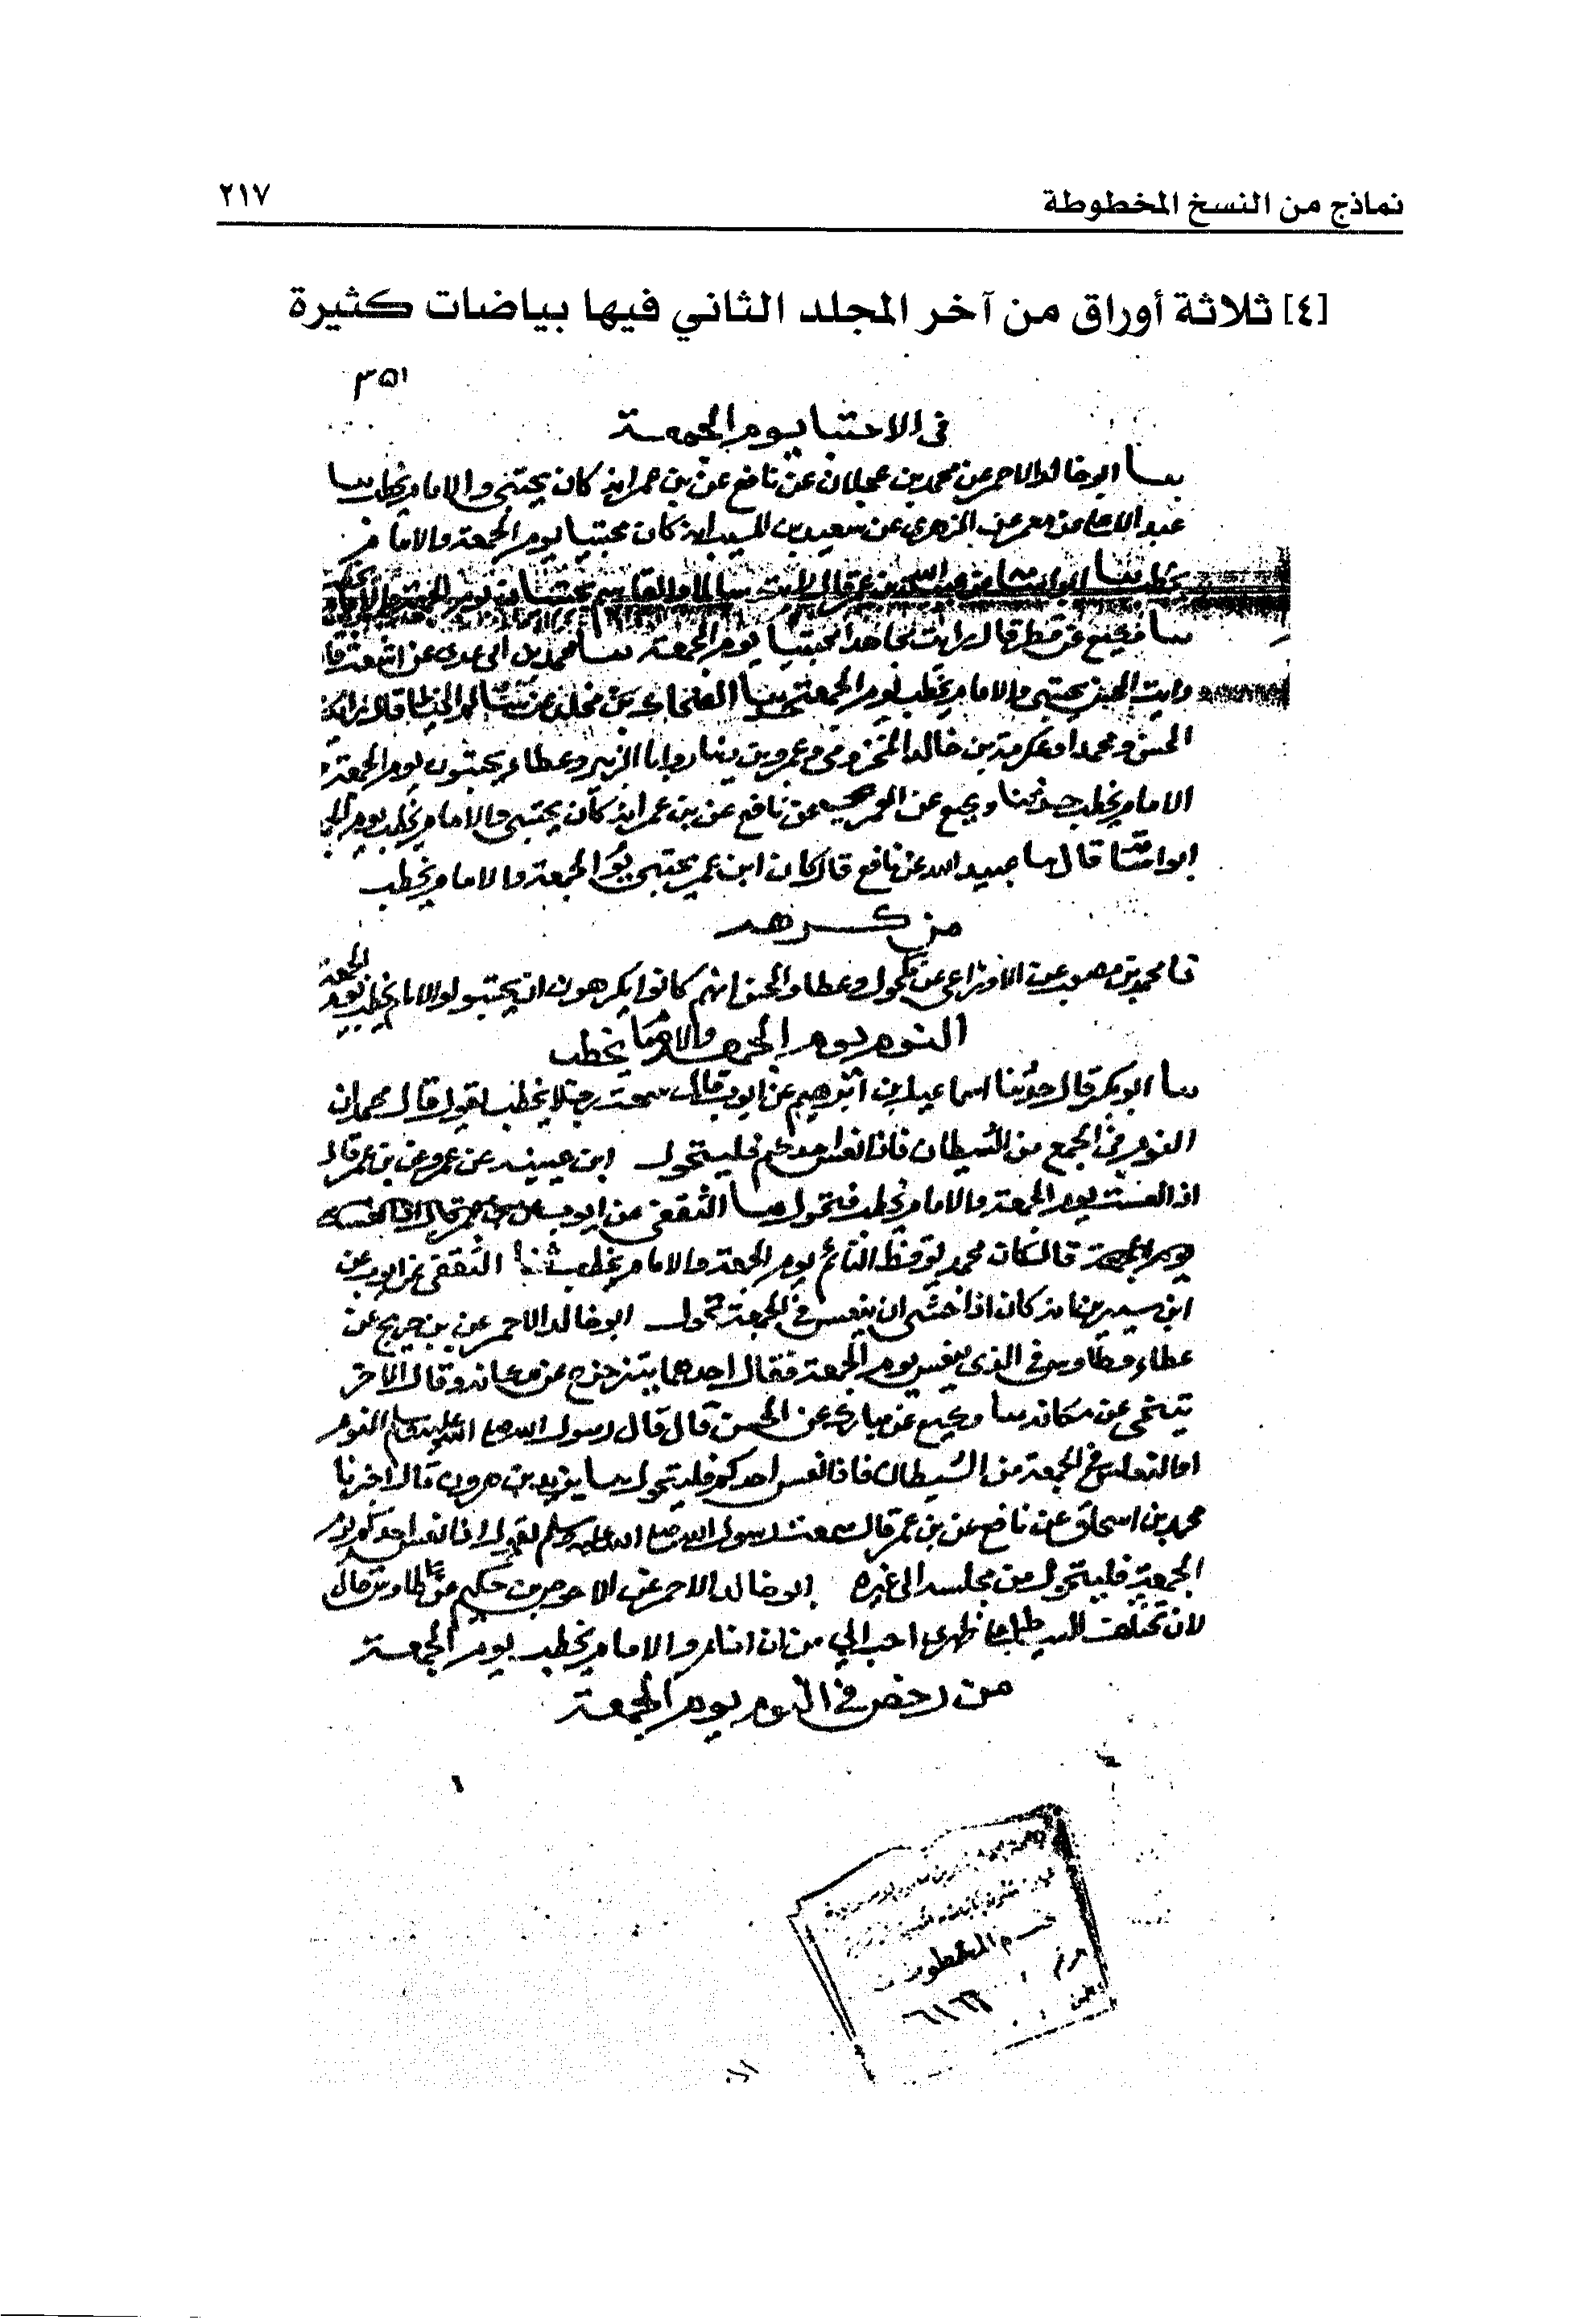 نماذج من النسخ المخطوطة
٢١٧
[٤] ثلاثة أوراق من آخر المجلد الثاني فيها بياضات كثيرة
٣٥١
في الاحتبا يوم الجمعة
ابو خالد الاحمر عن محمد بن عجلان عن نافع عن بن عمر انه كان يحتبي والامام يخطب
عبد الاعلى عن معمر عن الزهري عن سعيد بن المسيب انه كان محتبيا يوم الجمعة والامام
يخطب
وكيع عن قطر قال رايت مجاهدا محتبيا يوم الجمعة محمد بن ابي عدي عن اشعث قا
رايت الحسن يحتبي والامام يخطب يوم الجمعة الضحاك بن مخلد عن
الحسن ومحمدا وعكرمة بن خالد المخزومي وعمرو بن دينار وابا الزبير وعطاء يحتبون يوم الجمعة
الامام يخطب حدثنا وكيع عن العمري عن نافع عن بن عمر انه كان يحتبي والامام يخطب يوم
قال عبيد الله عن نافع قال كان ابن عمر يحتبي يوم الجمعة والامام يخطب
من كرهه
محمد بن مصعب عن الاوزاعي عن مكحول وعطا والحسن انهم كانوا يكرهون ان يحتبوا والامام يخطب يوم الجمعة
النوم يوم الجمعة والامام يخطب
ابو بكر قال حدثنا اسماعيل بن ابرهيم عن ايوب قال سمعت رجلا يخطب يقول قال محمد ان
النوم في الجمع من الشيطان فاذا نعس احدكم فليتحول ابن عيينه عن عمرو عن بن عمر قال
اذا نعست يوم الجمعة والامام يخطب فتحول الثقفي عن ايوب
يوم الجمعة قال كان محمد يوقظ النائم يوم الجمعة والامام يخطب حدثنا الثقفي عن ايوب عن
ابن سيرين انه كان اذا خشي ان ينعس في الجمعة تحول ابو خالد الاحمر عن بن جريج عن
عطاء وطاوس في الذي ينعس يوم الجمعة فقال احدهما يتزحزح عن مكانه وقال الاخر
يتنحى عن مكانه وكيع عن مبارك عن الحسن قال قال رسول الله صلى الله عليه وسلم النوم
النعاس في الجمعة من الشيطان فاذا نعس احدكم فليتحول يزيد بن هرون قال اخبرنا
محمد بن اسحاق عن نافع عن بن عمر قال سمعت رسول الله صلى الله عليه وسلم يقول اذا نعس احدكم يوم
الجمعة فليتحول من مجلسه الى غيره ابو خالد الاحمر عن الاحوص بن حكيم عن طاوس قال
لان تختلف السياط على ظهري احب الي من ان انام والامام يخطب يوم الجمعة
من رخص في النوم يوم الجمعة
قسم المخطوطات